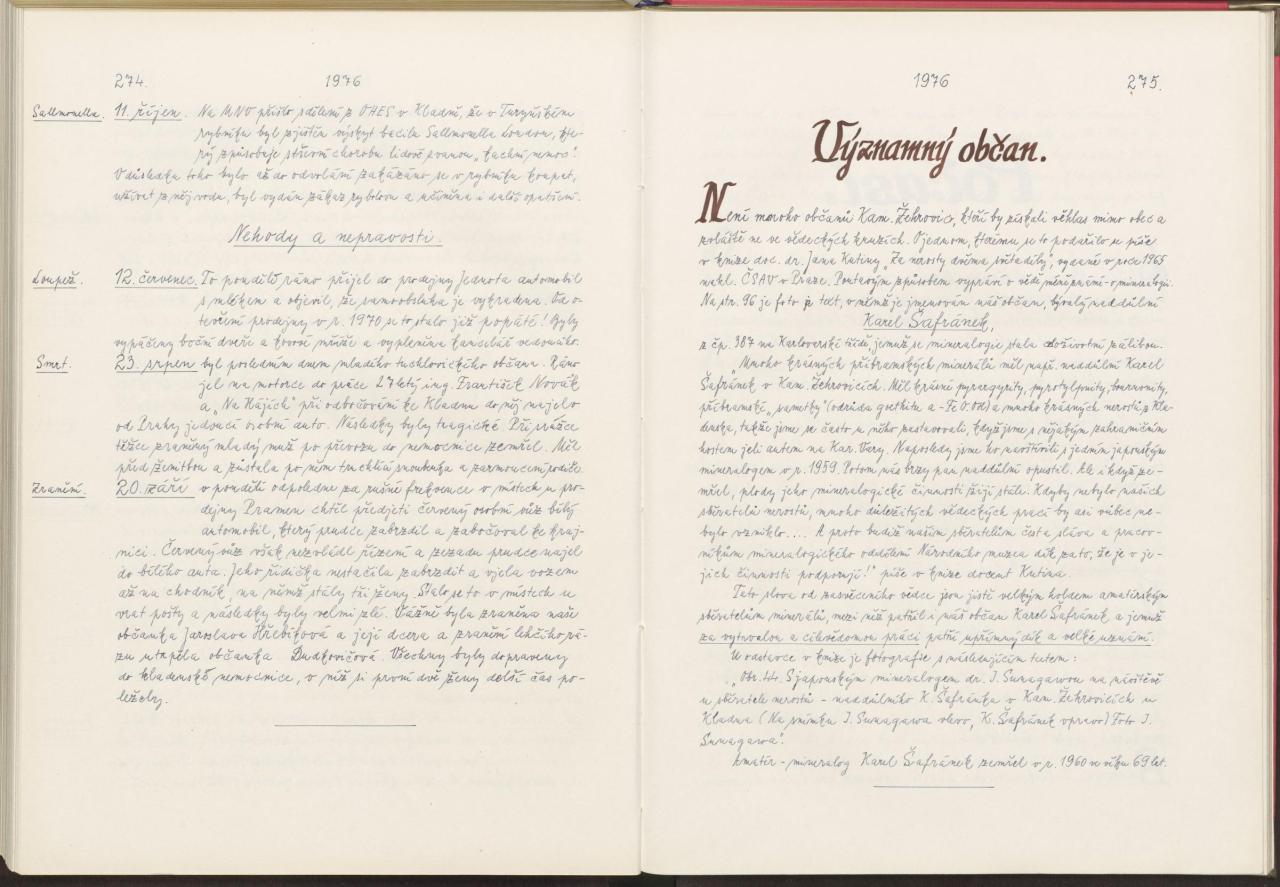 274.
1976
Sallmonella.
11. říjen. Na MNV přišlo sdělení z OHES v Kladně, že v Turyňském
rybníku byl zjištěn výskyt bacila Sallmonella London, kte-
rý způsobuje střevní chorobu lidově zvanou „kachní nemoc".
V důsledku toho bylo až do odvolání zakázáno se v rybníku koupat,
užívat z něj vodu, byl vydán zákaz rybolovu a učiněna i další opatření.
Nehody a nepravosti.
Loupež.
12. červenec. To pondělí ráno přijel do prodejny Jednota automobil
s mlékem a objevil, že samoobsluha je vykradena. Od o-
tevření prodejny v r. 1970 se to stalo již popáté! Byly
vypáčeny boční dveře a kovové mříže a vypleněna kancelář vedoucího.
Smrt.
23. srpen byl posledním dnem mladého tuchlovického občana. Ráno
jel na motorce do práce 27letý ing. František Novák
a „Na Hájích" při odbočování ke Kladnu do něj najelo
od Prahy jedoucí osobní auto. Následky byly tragické. Při srážce
těžce zraněný mladý muž po převozu do nemocnice zemřel. Měl
před ženitbou a zůstala po něm truchlící snoubenka a zarmoucení rodiče.
Zranění.
20. září v pondělí odpoledne za rušné frekvence v místech u pro-
dejny Pramen chtěl předjeti červený osobní vůz bílý
automobil, který prudce zabrzdil a zabočoval ke kraj-
nici. Červený vůz však nezvládl řízení a zezadu prudce najel
do bílého auta. Jeho řidička nestačila zabrzdit a vjela vozem
až na chodník, na němž stály tři ženy. Stalo se to v místech u
vrat pošty a následky byly velmi zlé. Vážně byla zraněna naše
občanka Jaroslava Hřebíková a její dcera a zranění lehčího rá-
zu utrpěla občanka Dudkovičová. Všechny byly dopraveny
do kladenské nemocnice, v níž si první dvě ženy delší čas po-
ležely.
1976
275.
Významný občan.
Není mnoho občanů Kam. Žehrovic, kteří by získali věhlas mimo obec a
zvláště ne ve vědeckých kruzích. O jednom, kterému se to podařilo se píše
v knize doc. dr. Jana Kutiny „Za nerosty dvěma světadíly", vydané v roce 1965
nakl. ČSAV v Praze. Poutavým způsobem vypráví o vědě méně známé - o mineralogii.
Na str. 96 je foto a text, v němž je jmenován náš občan, bývalý naddůlní
Karel Šafránek,
z čp. 387 na Karlovarské třídě, jemuž se mineralogie stala doživotní zálibou.
„Mnoho krásných příbramských minerálů měl např. naddůlní Karel
Šafránek v Kam. Žehrovicích. Měl krásné pyrargyrity, pyrostilpnity, bournonity,
příbramské „sametky" (odrůda goethitu α-FeO.OH) a mnoho krásných nerostů z Kla-
denska, takže jsme se často u něho zastavovali, když jsme s nějakým zahraničním
hostem jeli autem na Kar. Vary. Naposledy jsme ho navštívili s jedním japonským
mineralogem v r. 1959. Potom nás brzy pan naddůlní opustil. Ale i když ze-
mřel, plody jeho mineralogické činnosti žijí stále. Kdyby nebylo našich
sběratelů nerostů, mnoho důležitých vědeckých prací by asi vůbec ne-
bylo vzniklo.... A proto budiž našim sběratelům čest a sláva a pracov-
níkům mineralogického oddělení Národního muzea dík za to, že je v je-
jich činnosti podporují!" píše v knize docent Kutina.
Tato slova od zasvěceného vědce jsou jistě velkým holdem amatérským
sběratelům minerálů, mezi něž patřil i náš občan Karel Šafránek a jemuž
za vytrvalou a cílevědomou práci patří upřímný dík a velké uznání.
U odstavce v knize je fotografie s následujícím textem:
„Obr. 44. S japonským mineralogem dr. I. Sunagawou na návštěvě
u sběratele nerostů - naddůlního K. Šafránka v Kam. Žehrovicích u
Kladna (Na snímku I. Sunagawa vlevo, K. Šafránek vpravo) Foto I.
Sunagawa".
Amatér - mineralog Karel Šafránek zemřel v r. 1960 ve věku 69 let.